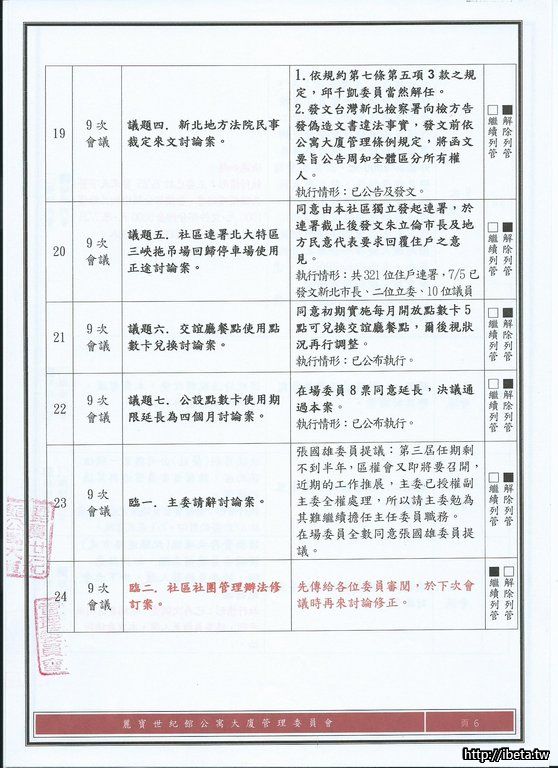 19
9次
會議
議題四．新北地方法院民事
裁定來文討論案。
1.依規約第七條第五項3款之規
定，邱千凱委員當然解任。
2.發文台灣新北檢察署向檢方告
發偽造文書違法事實，發文前依
公寓大廈管理條例規定，將函文
要旨公告周知全體區分所有權
人。
執行情形：已公告及發文。
□繼續列管
■解除列管
20
9次
會議
議題五．社區連署北大特區
三峽拖吊場回歸停車場使用
正途討論案。
同意由本社區獨立發起連署，於
連署截止後發文朱立倫市長及地
方民意代表要求回覆住戶之意
見。
執行情形：共321位住戶連署，7/5已
發文新北市長、二位立委、10位議員
□繼續列管
■解除列管
21
9次
會議
議題六．交誼廳餐點使用點
數卡兌換討論案。
同意初期實施每月開放點數卡5
點可兌換交誼廳餐點，爾後視狀
況再行調整。
執行情形：已公布執行。
□繼續列管
■解除列管
22
9次
會議
議題七．公設點數卡使用期
限延長為四個月討論案。
在場委員8票同意延長，決議通
過本案。
執行情形：已公布執行。
□繼續列管
■解除列管
23
9次
會議
臨一．主委請辭討論案。
張國雄委員提議：第三屆任期剩
不到半年，區權會又即將要召開，
近期的工作推展，主委已授權副
主委全權處理，所以請主委勉為
其難繼續擔任主任委員職務。
在場委員全數同意張國雄委員提
議。
□繼續列管
■解除列管
24
9次
會議
臨二．社區社團管理辦法修
訂案。
先傳給各位委員審閱，於下次會
議時再來討論修正。
■繼續列管
□解除列管
麗寶世紀館公寓大廈管理委員會
頁 6
http://ibeta.tw